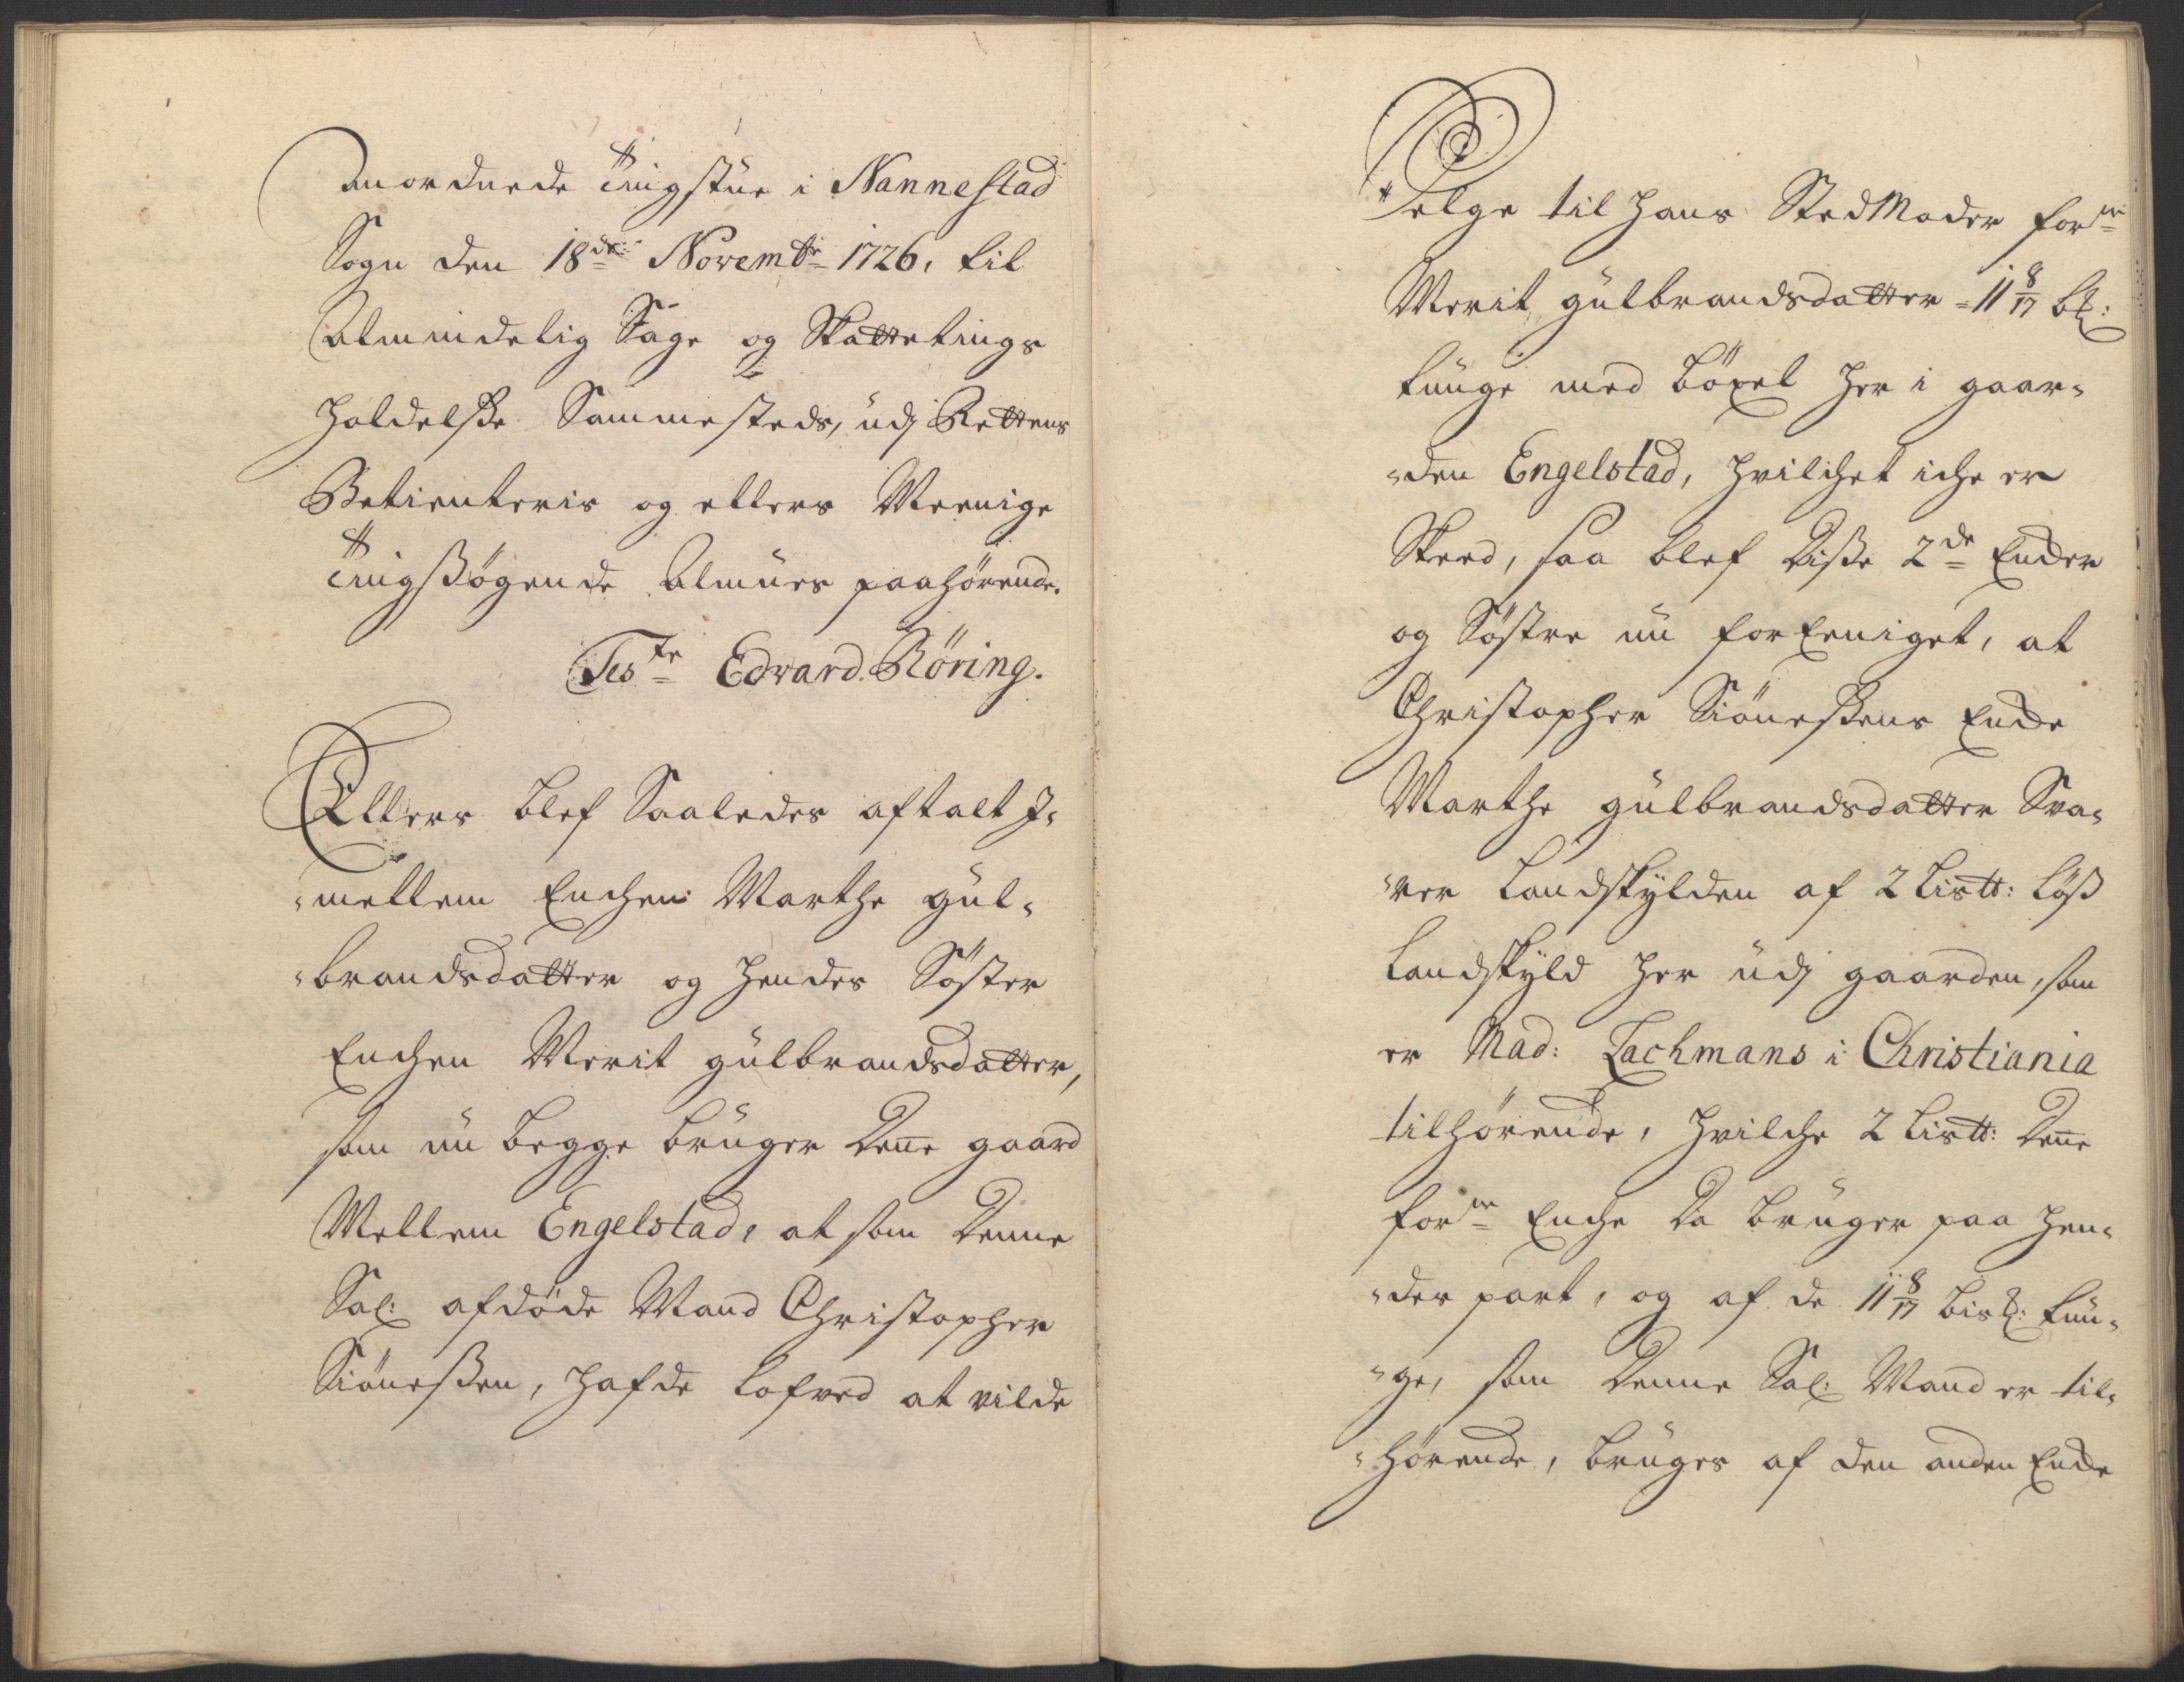 Anordnede Tingstue i Nannestad
Sogn den 18de Novembr 1726, til
Almindelig Sage og Skattetings
Holdelße Sammesteds, udj Rettens
Betienteris og ellers Meenige
Tingßøgende Almues paahörende.
Teste Edvard Röring.
Ellers blef Saaledes aftalt J-
mellem Enchen Marthe Gul-
brandsdatter og hendes Söster
Enchen Merit gulbrandsdatter,
som nu begge bruger denne gaard
Mellem Engelstad, at som denne
Sal: afdöde Mand Christopher
Siöneßen, hafde lofved at vilde
Selge til hans StedModer forne
Merit gulbrandsdatter 11 8/17 l℔:
tunge med böxel her i gaar-
den Engelstad, hvilchet iche er
Skeed, saa blef diße 2de Encker
og Söstre nu forEeniget, at
Christopher Siöneßens Encke
Marthe gulbrandsdatter Sva-
rer Landskylden af 2 Lis℔: löß
Landskyld her udj gaarden, som
er Mad: Lachmans i Christiania
tilhörende, hvilche 2 Lis℔: denne
forne Enche da bruger paa hen-
des part, og af de 11 8/17 Lis℔: tun-
ge, som denne Sal: Mand er til-
hörende, bruges af den anden Encke